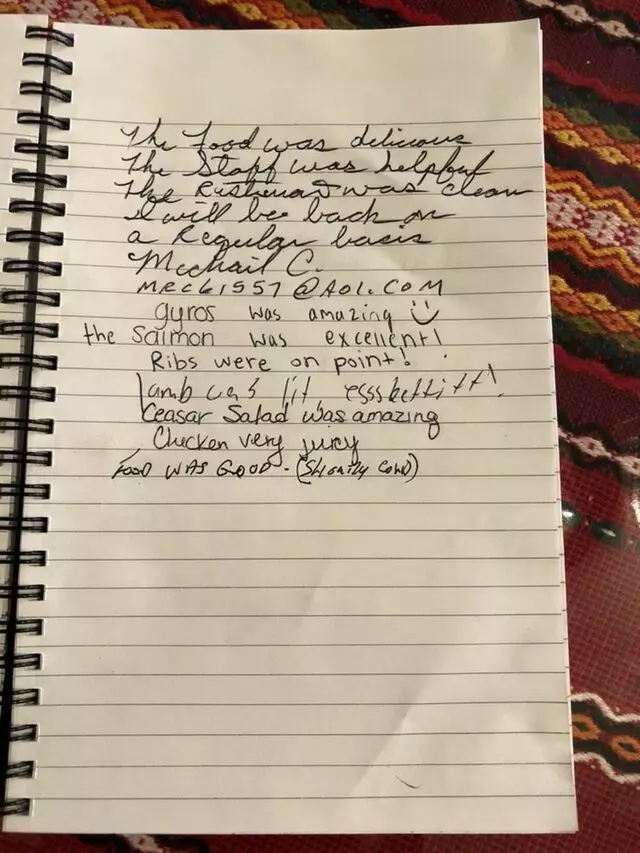 The Food was delicious
The Staff was helpful
The was clean
I will be back on
a Regular basis
Mechail C.
MRC61957@AOL.COM
gyros was amazing
the Salmon was excellent!
Ribs were on point!
lamb was lit,
Ceasar Salad was amazing
Chicken very juicy
FOOD WAS GOOD - (Slightly Cold)